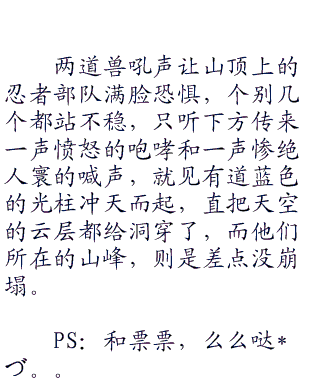 两道兽吼声让山顶上的
忍者部队满脸恐惧，个别几
个都站不稳，只听下方传来
一声愤怒的咆哮和一声惨绝
人寰的喊声，就见有道蓝色
的光柱冲天而起，直把天空
的云层都给洞穿了，而他们
所在的山峰，则是差点没崩
塌。
PS：和票票，么么哒*
づ。。